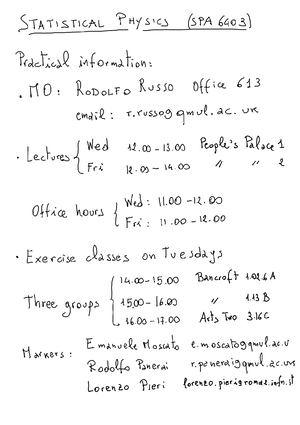 STATISTICAL PHYSICS (SPA 6403)
Practical information:
. MO: RODOLFO RUSSO Office 613
email: r.russo@qmul.ac.uk
. Lectures { Wed 12.00-13.00 People's Palace 1
Fri 12.00-14.00 " " 2
Office hours { Wed: 11.00-12.00
Fri: 11.00-12.00
. Exercise classes on Tuesdays
Three groups { 14.00-15.00 Bancroft 1.02.6A
15.00-16.00 " 1.13B
16.00-17.00 Arts Two 3.16C
Markers: Emanuele Moscato e.moscato@qmul.ac.u
Rodolfo Panerai r.panerai@qmul.ac.uk
Lorenzo Pieri lorenzo.pieri@roma2.infn.it